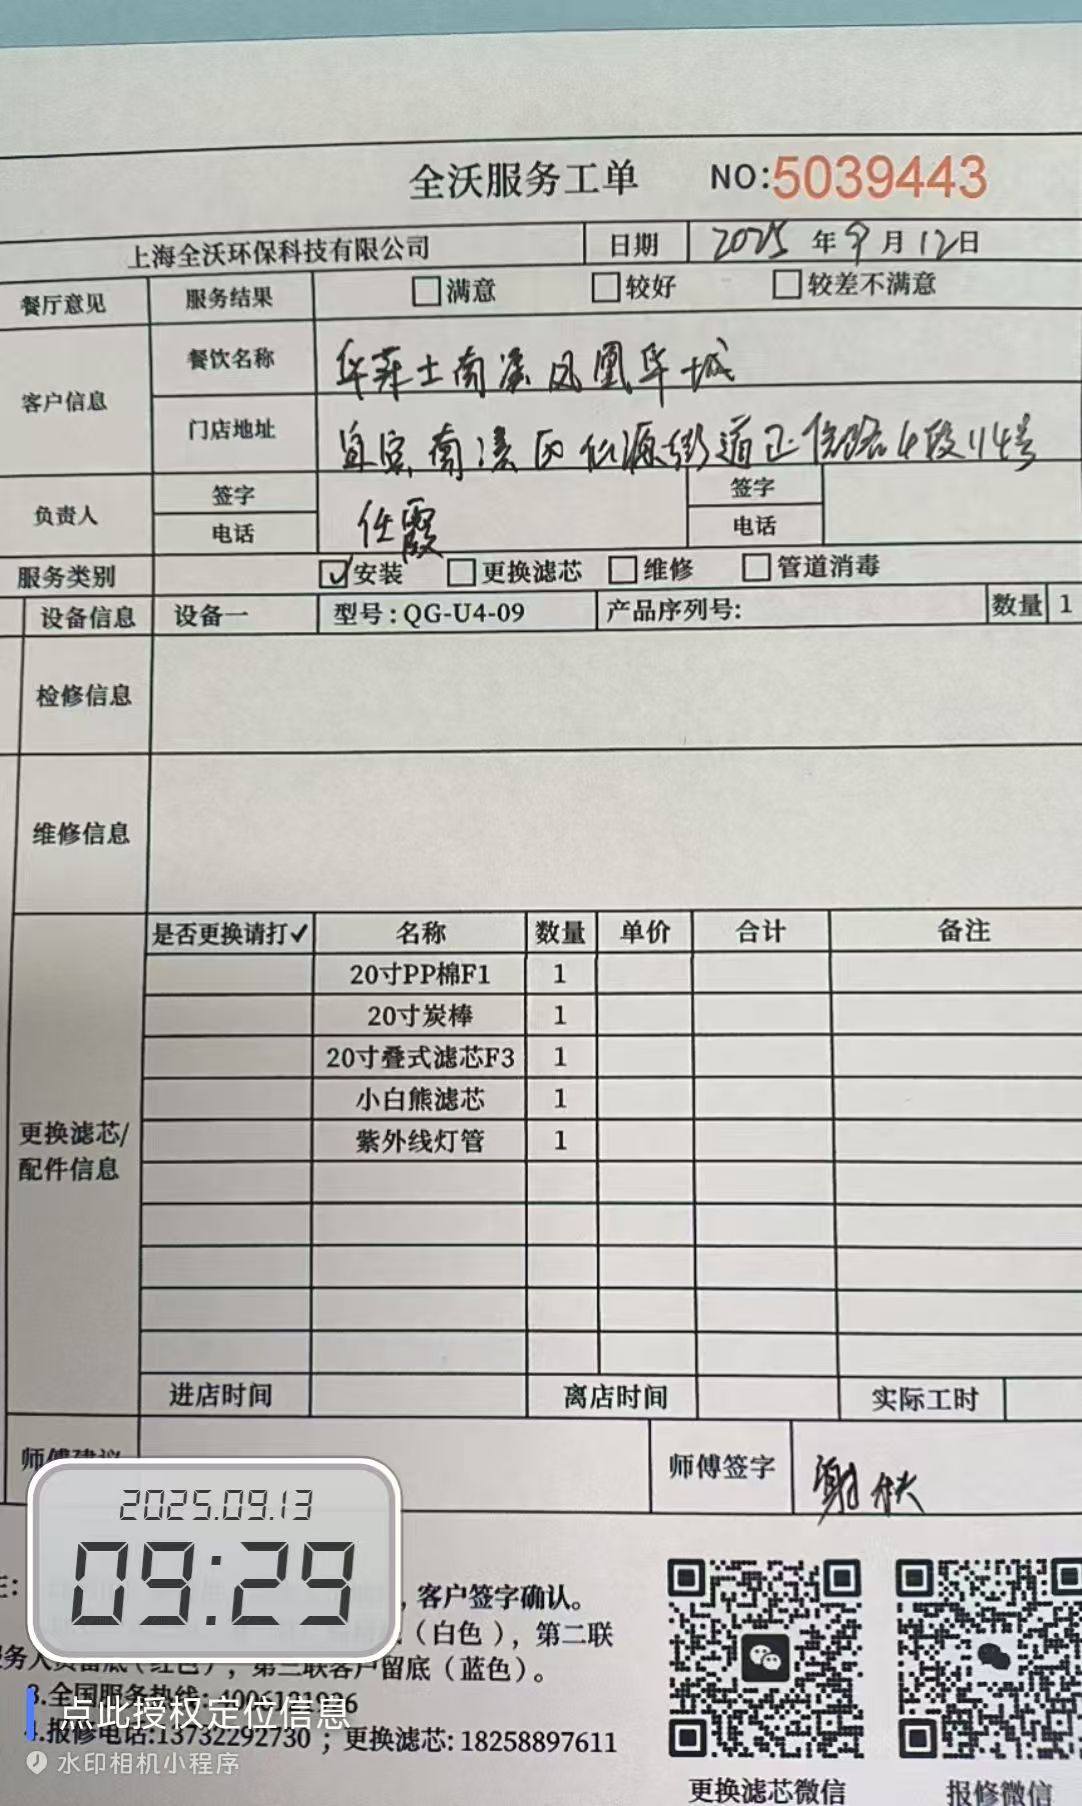 全沃服务工单 NO:5039443
上海全沃环保科技有限公司 日期 2025年9月12日
餐厅意见 服务结果 满意 较好 较差不满意
客户信息 餐饮名称 华莱士南溪凤凰华城
门店地址 宜宾南溪区仙源街道正信路4段114号
负责人 签字 任霞 签字
电话 电话
服务类别 安装 更换滤芯 维修 管道消毒
设备信息 设备一 型号:QG-U4-09 产品序列号: 数量 1
检修信息
维修信息
是否更换请打✓ 名称 数量 单价 合计 备注
20寸PP棉F1 1
20寸炭棒 1
20寸叠式滤芯F3 1
小白熊滤芯 1
紫外线灯管 1
更换滤芯/
配件信息
进店时间 离店时间 实际工时
师傅建议 师傅签字
2025.09.13
09:29
,客户签字确认。
(白色),第二联
服务人员留底(红色),第三联客户留底(蓝色)。
3.全国服务热线:
点此授权定位信息
4.报修电话:13732292730;更换滤芯:18258897611
水印相机小程序
更换滤芯微信 报修微信